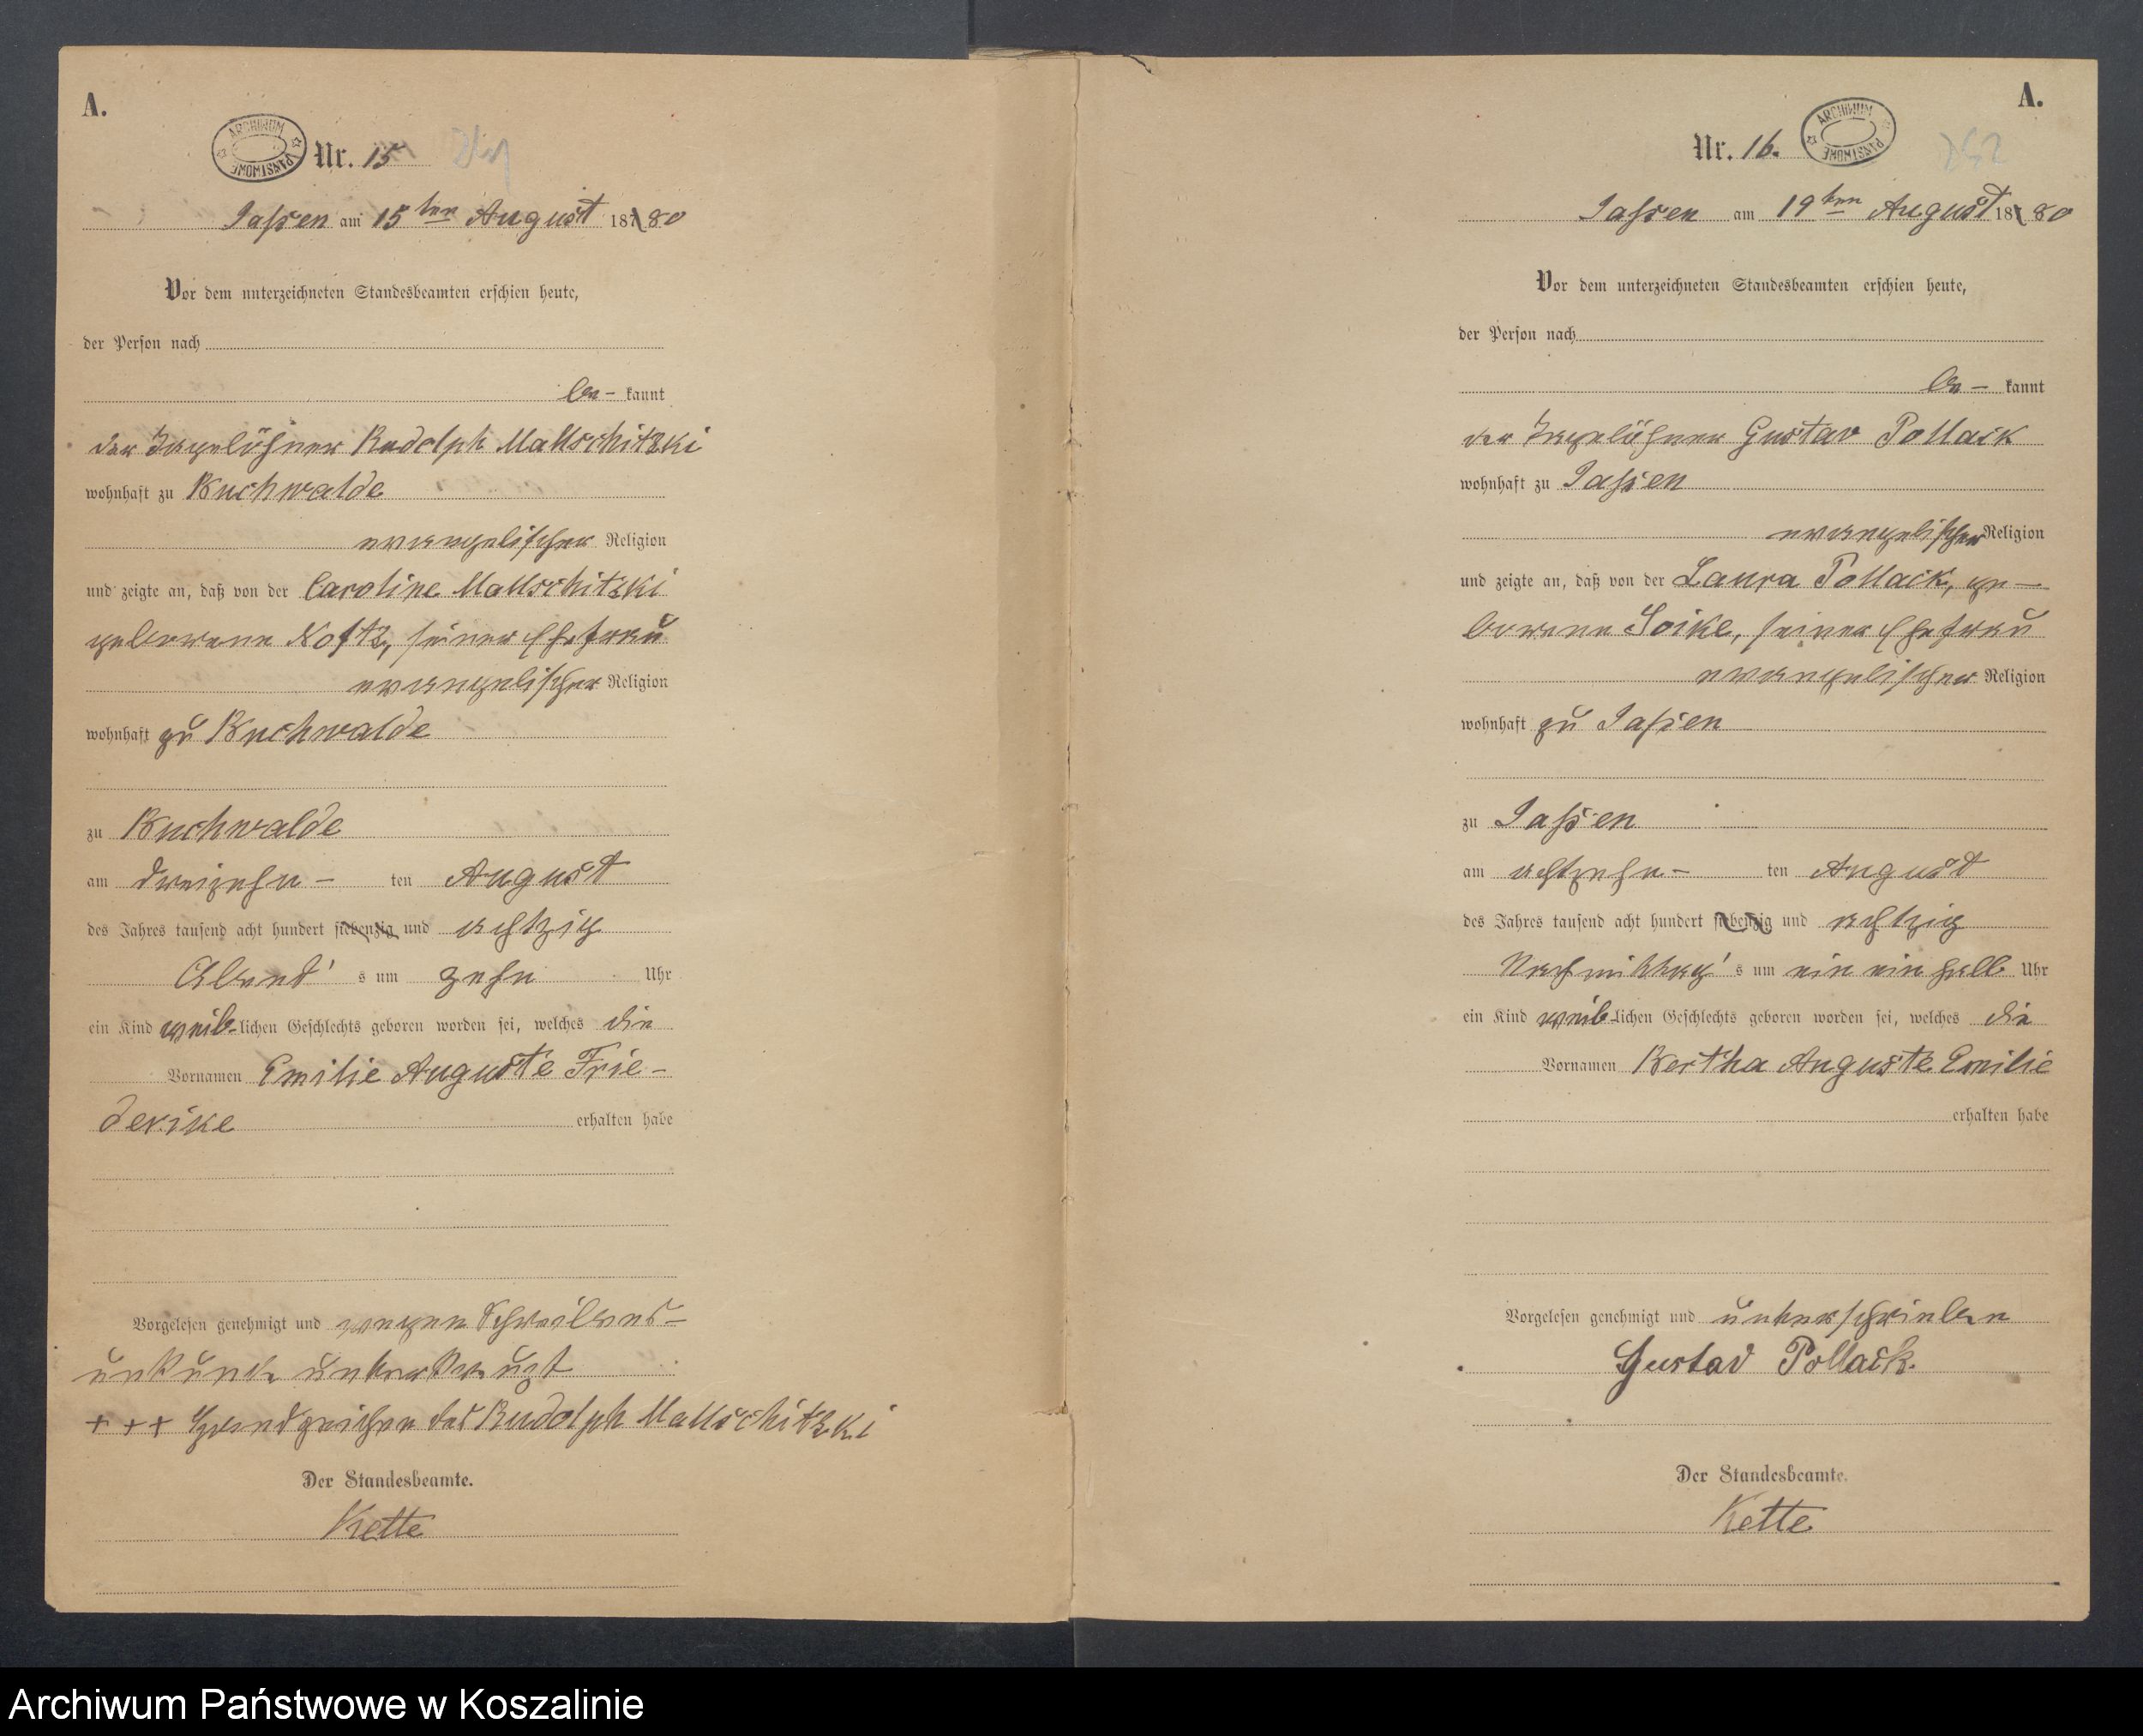 A.
ARCHIWUM PAŃSTWOWE
Nr. 15
Jassen am 15ten August 1880
Vor dem unterzeichneten Standesbeamten erschien heute,
der Person nach
be- kannt
der Tagelöhner Rudolph Mallschitzki
wohnhaft zu Buchwalde
evangelischer Religion
und zeigte an, daß von der Caroline Mallschitzki
geborene Noftz, seiner Ehefrau
evangelischer Religion
wohnhaft zu Buchwalde
zu Buchwalde
am dreizehn- ten August
des Jahres tausend acht hundert siebenzig und achtzig
Abend's um zehn Uhr
ein Kind weib-lichen Geschlechts geboren worden sei, welches die
Vornamen Emilie Auguste Frie-
derike erhalten habe
Vorgelesen genehmigt und wegen Schreibens-
unkunde unterkreuzt
+++ Handzeichen des Rudolph Mallschitzki
Der Standesbeamte.
Kette
A.
ARCHIWUM PAŃSTWOWE
Nr. 16.
Jassen am 19ten August 1880
Vor dem unterzeichneten Standesbeamten erschien heute,
der Person nach
be- kannt
der Tagelöhner Gustav Pollack
wohnhaft zu Jassen
evangelischer Religion
und zeigte an, daß von der Laura Pollack, ge-
borene Soike, seiner Ehefrau
evangelischer Religion
wohnhaft zu Jassen
zu Jassen
am achtzehn- ten August
des Jahres tausend acht hundert siebenzig und achtzig
Nachmittag's um ein ein halb Uhr
ein Kind weib-lichen Geschlechts geboren worden sei, welches die
Vornamen Bertha Auguste Emilie
erhalten habe
Vorgelesen genehmigt und unterschrieben
Gustav Pollack.
Der Standesbeamte.
Kette
Archiwum Państwowe w Koszalinie